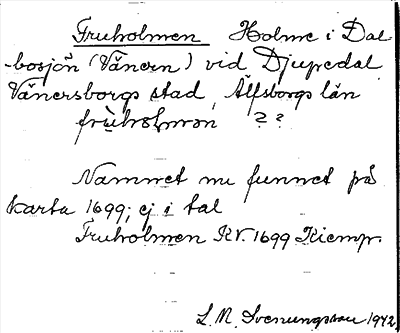 Fruholmen Holme i Dal
-bosjön (Vänern) vid Djupedal
Vänersborgs stad, Älfsborgs län
frùhólmən ? ?
Namnet nu funnet på
karta 1699; ej i tal
Fruholmen KV. 1699 Kiemp.
L. M. Svenungsson 1942